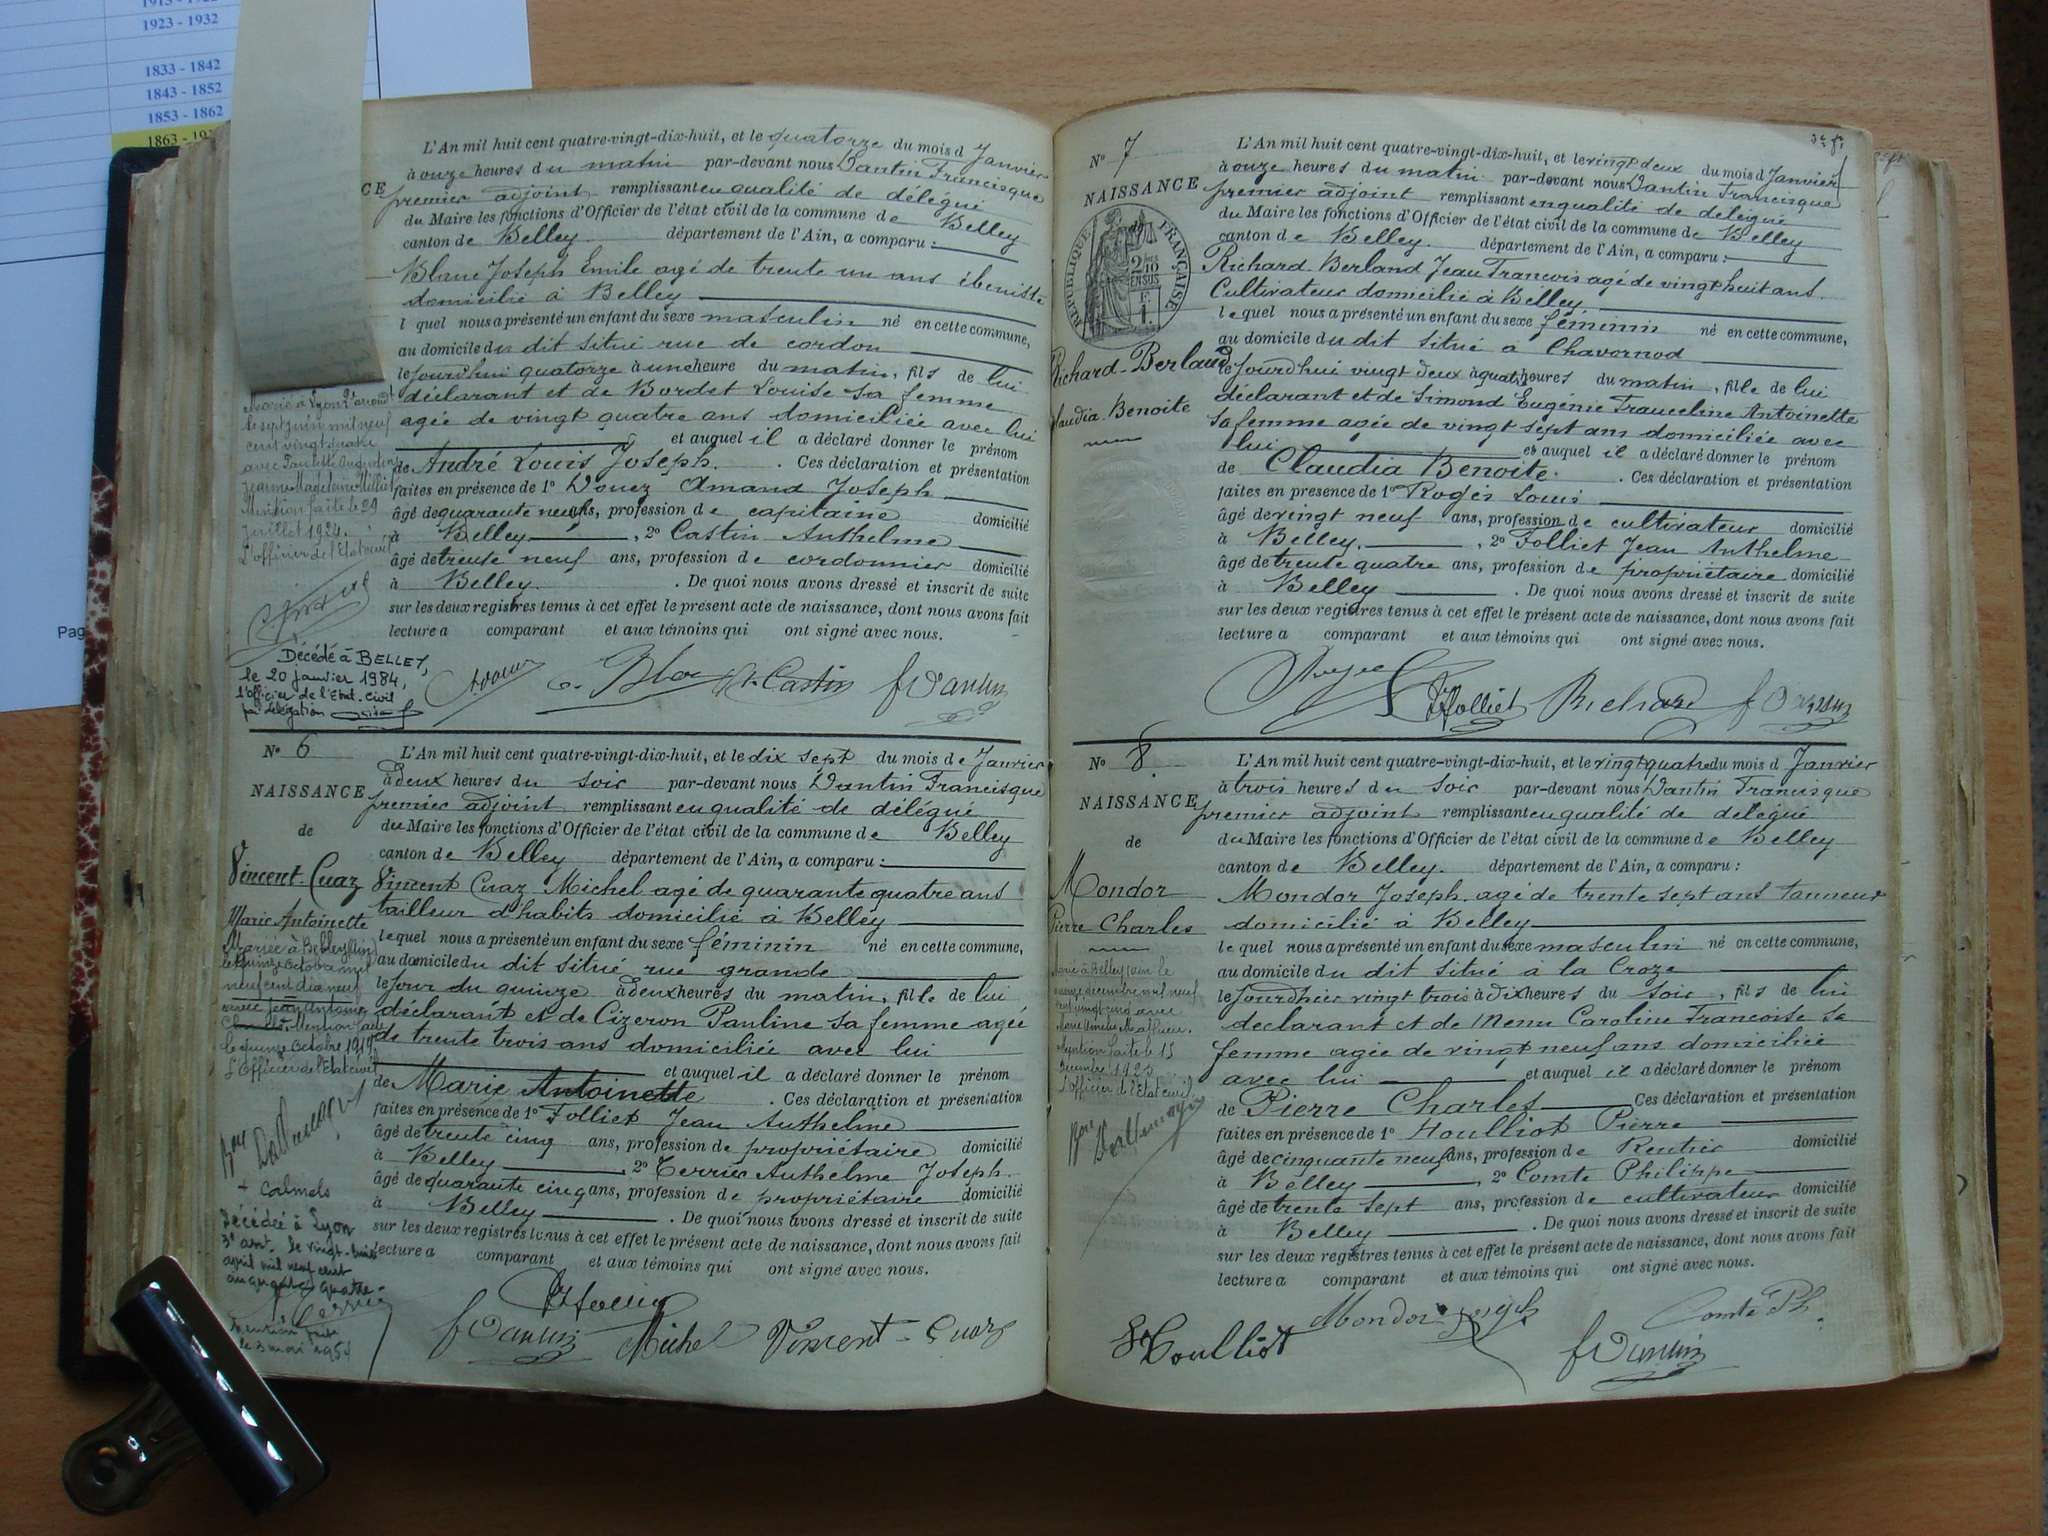 1923 - 1932
1833 - 1842
1843 - 1852
1853 - 1862
1863 - 19
Pag
L'An mil huit cent quatre-vingt-dix-huit, et le quatorze du mois d Janvier
à onze heures du matin par-devant nous Vantin Francisque
CE premier adjoint remplissant en qualité de délégué
du Maire les fonctions d'Officier de l'état civil de la commune de Belley
canton de Belley département de l'Ain, a comparu :
Blanc Joseph Emile agé de trente un ans ébeniste
domicilié à Belley
l quel nous a présenté un enfant du sexe masculin né en cette commune,
au domicile du dit situé rue de cordon
le jourd'hui quatorze à une heure du matin, fils de lui
déclarant et de Bordet Louise sa femme
agée de vingt quatre ans domiciliée avec lui
et auquel il a déclaré donner le prénom
de André Louis Joseph. Ces déclaration et présentation
faites en présence de 1º Douez Amand Joseph
âgé de quarante neuf ans, profession de capitaine domicilié
à Belley, 2º Castin Anthelme
âgé de trente neuf ans, profession de cordonnier domicilié
à Belley. De quoi nous avons dressé et inscrit de suite
sur les deux registres tenus à cet effet le présent acte de naissance, dont nous avons fait
lecture a comparant et aux témoins qui ont signé avec nous.
Marié à Lyon 2e arrondt
le sept juin mil neuf
cent vingt quatre
avec Paulette Augustine
Jeanne Magdelaine Milliet
Mention faite le 29
Juillet 1924.
L'officier de l'Etat civil
Décédé à BELLEY,
le 20 janvier 1984,
l'Officier de l'Etat-Civil
par délégation
Castin fVantin
Nº 6
NAISSANCE
de
Vincent-Cuaz
Marie Antoinette
Mariée à Belley (Ain)
le quinze Octobre mil
neuf cent dix neuf
avec Jean Antoine
Mention faite
le quinze Octobre 1919
L'Officier de l'Etat civil
+ Calmels
Décédée à Lyon
3e arrt. le vingt-huit
avril mil neuf cent
cinquante quatre.
Mention faite
le 3 mai 1954
L'An mil huit cent quatre-vingt-dix-huit, et le dix sept du mois de Janvier
à deux heures du soir par-devant nous Vantin Francisque
premier adjoint remplissant en qualité de délégué
du Maire les fonctions d'Officier de l'état civil de la commune de Belley
canton de Belley département de l'Ain, a comparu :
Vincent Cuaz Michel agé de quarante quatre ans
tailleur d'habits domicilié à Belley
lequel nous a présenté un enfant du sexe féminin né en cette commune,
au domicile du dit situé rue grande
le jour du quinze à deux heures du matin, fille de lui
déclarant et de Cizeron Pauline sa femme agée
de trente trois ans domiciliée avec lui
et auquel il a déclaré donner le prénom
de Marie Antoinette. Ces déclaration et présentation
faites en présence de 1º Folliet Jean Anthelme
âgé de trente cinq ans, profession de propriétaire domicilié
à Belley 2º Terrier Anthelme Joseph
âgé de quarante cinq ans, profession de propriétaire domicilié
à Belley. De quoi nous avons dressé et inscrit de suite
sur les deux registres tenus à cet effet le présent acte de naissance, dont nous avons fait
lecture a comparant et aux témoins qui ont signé avec nous.
fVantin Michel Vincent-Cuaz
Nº 7
NAISSANCE
RÉPUBLIQUE FRANÇAISE
2/10
EN SUS
F.
1.
Richard-Berland
Claudia Benoite
L'An mil huit cent quatre-vingt-dix-huit, et le vingt deux du mois d Janvier
à onze heures du matin par-devant nous Vantin Francisque
premier adjoint remplissant en qualité de délégué
du Maire les fonctions d'Officier de l'état civil de la commune de Belley
canton de Belley. département de l'Ain, a comparu :
Richard-Berland Jean François agé de vingt huit ans
Cultivateur domicilié à Belley
lequel nous a présenté un enfant du sexe féminin né en cette commune,
au domicile du dit situé à Chavornod
le jourd'hui vingt deux à quatre heures du matin, fille de lui
déclarant et de Simond Eugénie Franceline Antoinette
sa femme agée de vingt sept ans domiciliée avec
lui et auquel il a déclaré donner le prénom
de Claudia Benoite. Ces déclaration et présentation
faites en presence de 1º Roger Louis
âgé de vingt neuf ans, profession de cultivateur domicilié
à Belley, 2º Folliet Jean Anthelme
âgé de trente quatre ans, profession de propriétaire domicilié
à Belley. De quoi nous avons dressé et inscrit de suite
sur les deux registres tenus à cet effet le présent acte de naissance, dont nous avons fait
lecture a comparant et aux témoins qui ont signé avec nous.
Folliet Richard fVantin
Nº 8.
NAISSANCE
de
Mondor
Pierre Charles
Marié à Belley (Ain) le
décembre mil neuf
cent vingt cinq avec
Mention faite le 15
Décembre 1925
L'officier de l'Etat civil
L'An mil huit cent quatre-vingt-dix-huit, et le vingt quatre du mois d Janvier
à trois heures du soir par-devant nous Vantin Francisque
premier adjoint remplissant en qualité de délégué
du Maire les fonctions d'Officier de l'état civil de la commune de Belley
canton de Belley. département de l'Ain, a comparu :
Mondor Joseph agé de trente sept ans tanneur
domicilié à Belley
le quel nous a présenté un enfant du sexe masculin né en cette commune,
au domicile du dit situé à la Croze
le jourdhier vingt trois à dix heures du soir, fils de lui
declarant et de Menu Caroline Francoise sa
femme agée de vingt neuf ans domiciliée
avec lui et auquel il a déclaré donner le prénom
de Pierre Charles Ces déclaration et présentation
faites en présence de 1º Houlliot Pierre
âgé de cinquante neuf ans, profession de Rentier domicilié
à Belley, 2º Comte Philippe
âgé de trente sept ans, profession de cultivateur domicilié
à Belley. De quoi nous avons dressé et inscrit de suite
sur les deux registres tenus à cet effet le présent acte de naissance, dont nous avons fait
lecture a comparant et aux témoins qui ont signé avec nous.
Mondor Joseph Comte Ph.
Houlliot fVantin